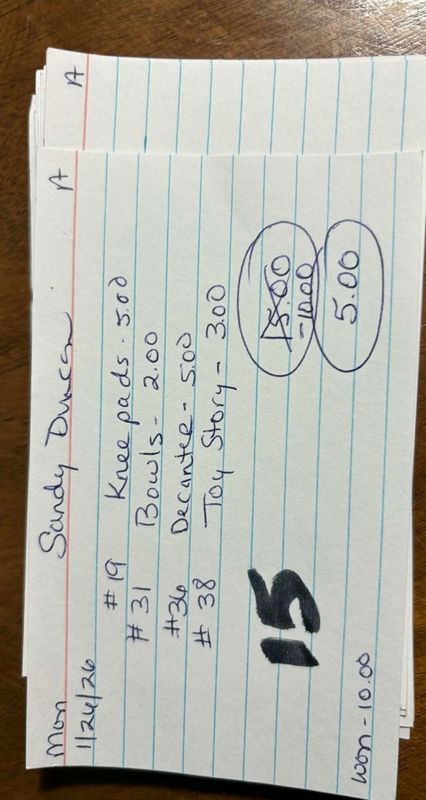 Mon Sandy Duncan A
1/24/26
#19 Kneepads - 5.00
#31 Bowls - 2.00
#36 Decanter - 5.00
#38 Toy Story - 3.00
15 15.00
-10.00
5.00
won - 10.00
A